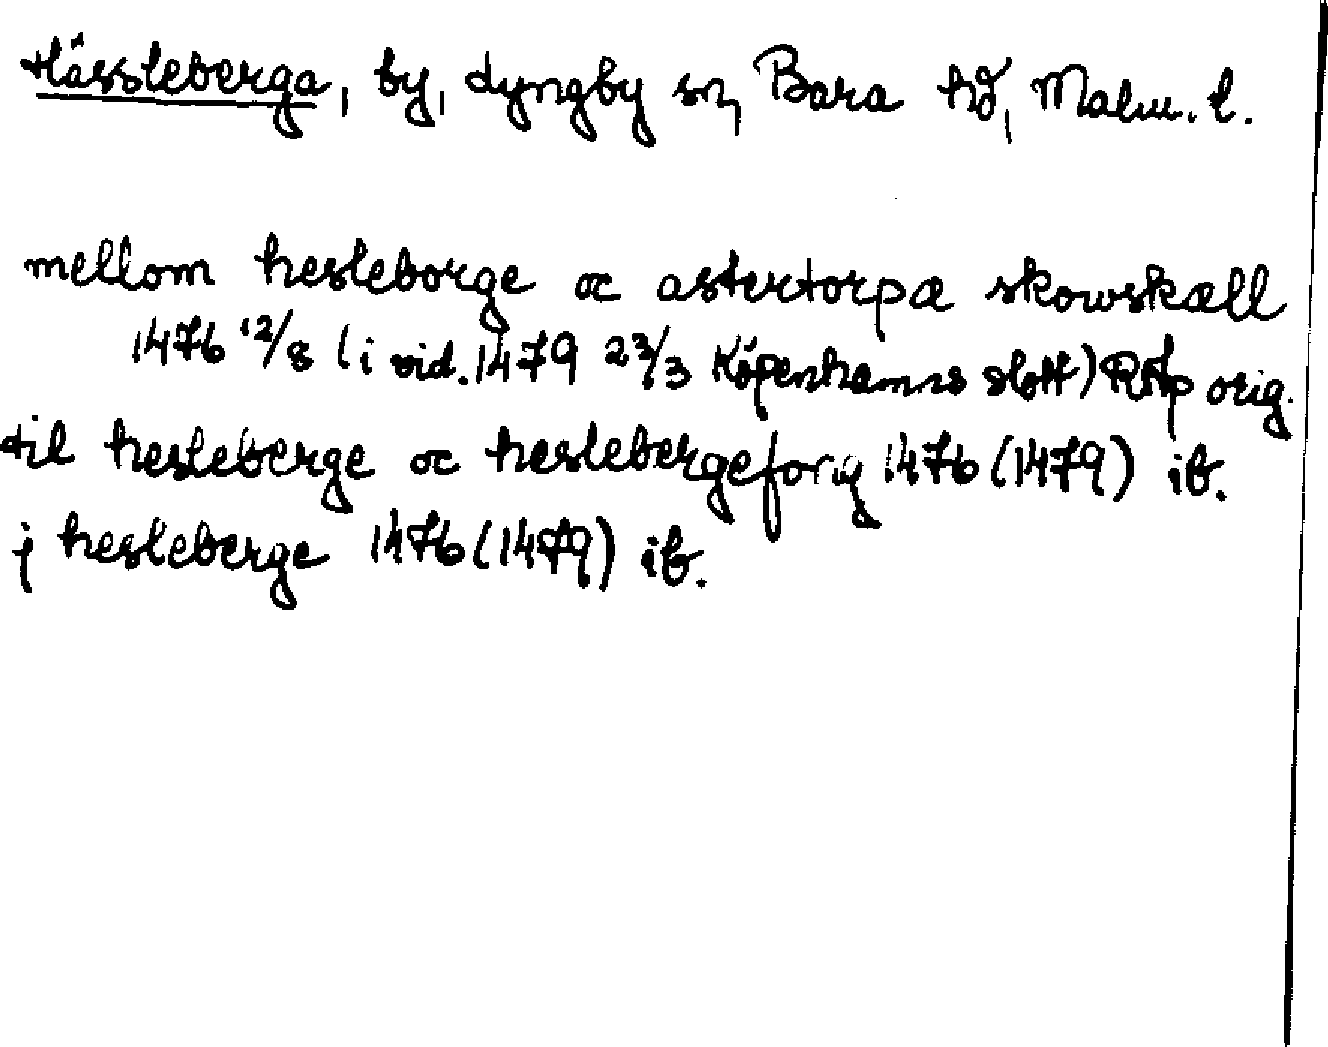 Hässleberga, by, Lyngby sn, Bara hd, Malm. l.
mellom hesleborge oc astertorpa skowskæll
1476 12/8 (i vid. 1479 23/3 Köpenhamns slott) RAp orig.
til hesleberge oc heslebergeforig 1476 (1479) ib.
j hesleberge 1476 (1479) ib.